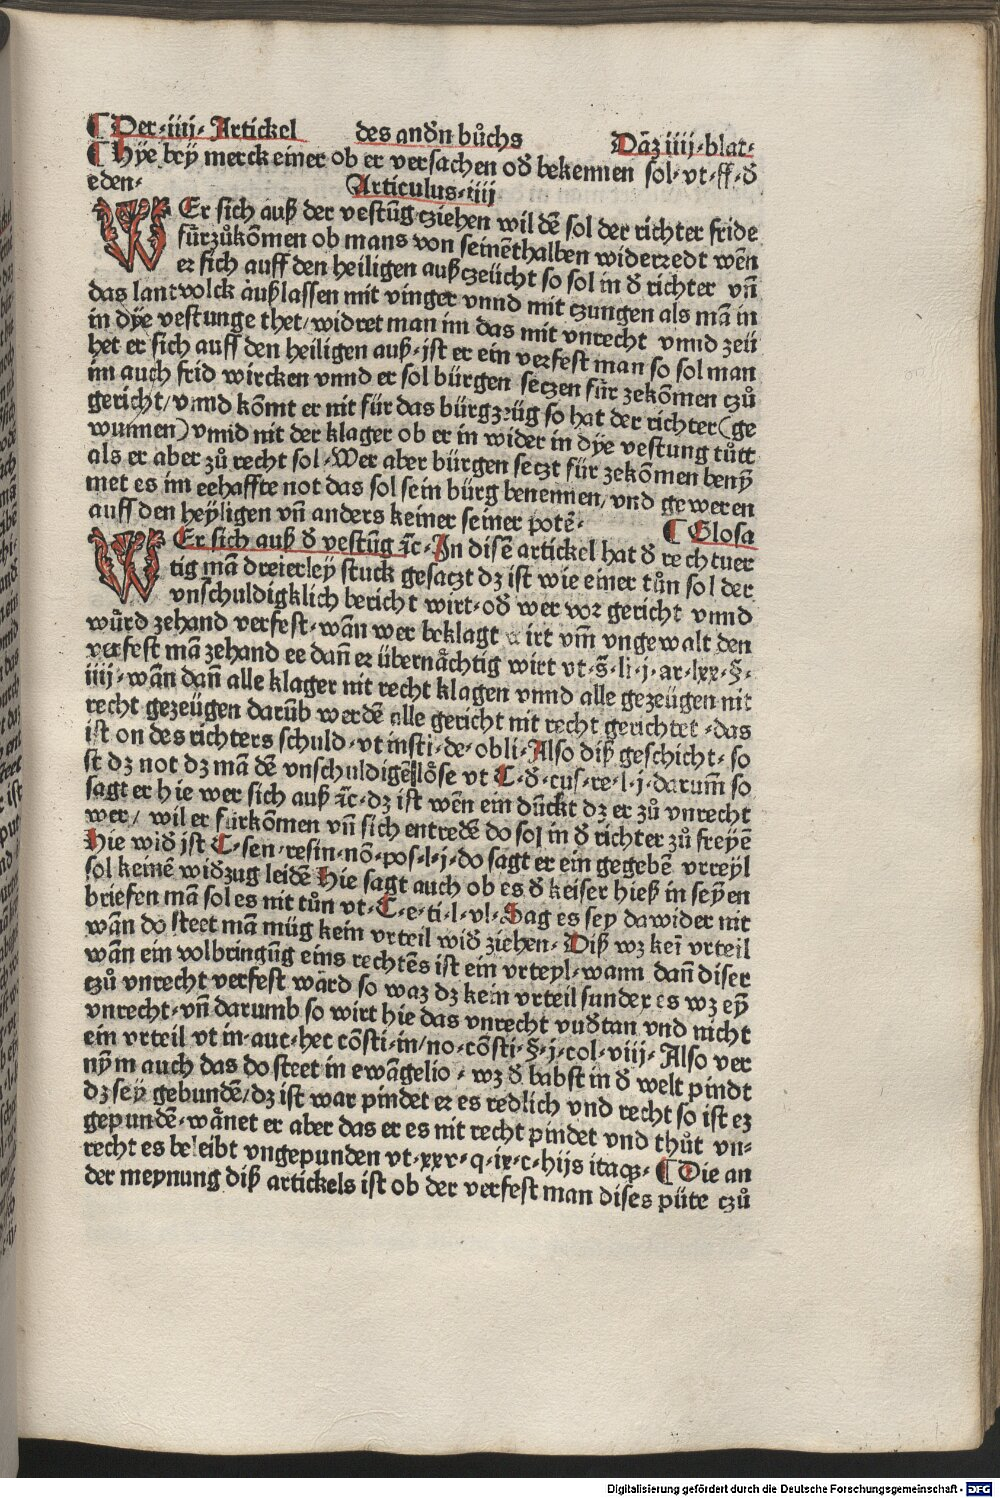 ¶ Der·iiij·Artickel des andn̄ bůchs Däz iiij·blat·
¶ Hye bey merck einer ob er versachen od̄ bekennen sol·vt·ff·d̄
eden· Articulus·iiij
WEr sich auß der vestūg czziehen wil dē sol der richter fride
fürzůkōmen ob mans von seinēthalben widerredt wēn
er sich auff den heiligen auß czeücht so sol in d̄ richter vn̄
das lantvolck außlassen mit vinger vnnd mit czungen als mā in
in dÿe vestunge thet/widret man im das mit vnrecht vnnd zeü
het er sich auff den heiligen auß·ist er ein verfest man so sol man
im auch frid wircken vnnd er sol bürgen seczen für zekōmen czů
gericht/vnnd kōmt er nit für das bürgzzüg so hat der richter(ge
wunnen)vnnd nit der klager ob er in wider in dÿe vestung tůtt
als er aber zů recht sol·Wer aber bürgen seczt für zekōmen benÿ
met es im eehaffte not das sol sein bürg benennen/vnd geweren
auff den heÿligen vn̄ anders keiner seiner potē· ¶ Glosa
WEr sich auß d̄ vestūg ꝛc·In disē artickel hat d̄ rechtuer
tig mā dreierleÿ stuck gesaczt dz ist wie einer tůn sol der
vnschuldigklich bericht wirt·od̄ wer vor gericht vnnd
wůrd zehand verfest·wān wer beklagt wirt vm̄ vngewalt den
verfest mā zehand ee dan̄ er übernåchtig wirt vt·s̄·li·j·ar·lxx·§·
iiij·wān dan̄ alle klager nit recht klagen vnnd alle gezeügen nit
recht gezeügen darūb werdē alle gericht nit recht gerichtet·das
ist on des richters schuld·vt insti·de·obli·Also diß geschicht·so
st dz not dz mā dē vnschuldigē lőse vt C·d̄·cus·re·l·j·darum̄ so
sagt er hie wer sich auß ꝛc·dz ist wēn ein dūckt dz er zů vnrecht
wer/ wil er fürkōmen vn̄ sich entredē do sol in d̄ richter zů freyē
Hie wid̄ ist C·sen·resin·nō·pos·l·j·do sagt er ein gegebē vrteyl
sol keinē wid̄zug leidē Hie sagt auch ob es d̄ keiser hieß in seÿen
briefen mā sol es nit tůn vt·C·e·ti·l·vl·Sag es sey dawider nit
wān do steet mā müg kein vrteil wid̄ ziehen·Diß wz kei vrteil
wān ein volbringūg eins rechtēs ist ein vrteyl·wann dan̄ diser
czů vnrecht verfest wård so waz dz kein vrteil sunder es wz eÿ
vnrecht·vn̄ darumb so wirt hie das vnrecht vnd̄tan vnd nicht
ein vrteil vt in·auc·hec cōsti·in/no·cōsti·§·j·col·viij·Also ver
nÿm auch das do steet in ewāgelio·wz d̄ babst in d̄ welt pindt
dz seÿ gebundē/dz ist war pindet er es redlich vnd recht so ist ez
gepundē·wånet er aber das er es nit recht pindet vnd thůt vn⸗
recht es beleibt vngepunden vt·xxv·q·ix·c·hijs itaqꝫ· ¶ Die an
der meynung diß artickels ist ob der verfest man dises püte czů
Digitalisierung gefördert durch die Deutsche Forschungsgemeinschaft - DFG